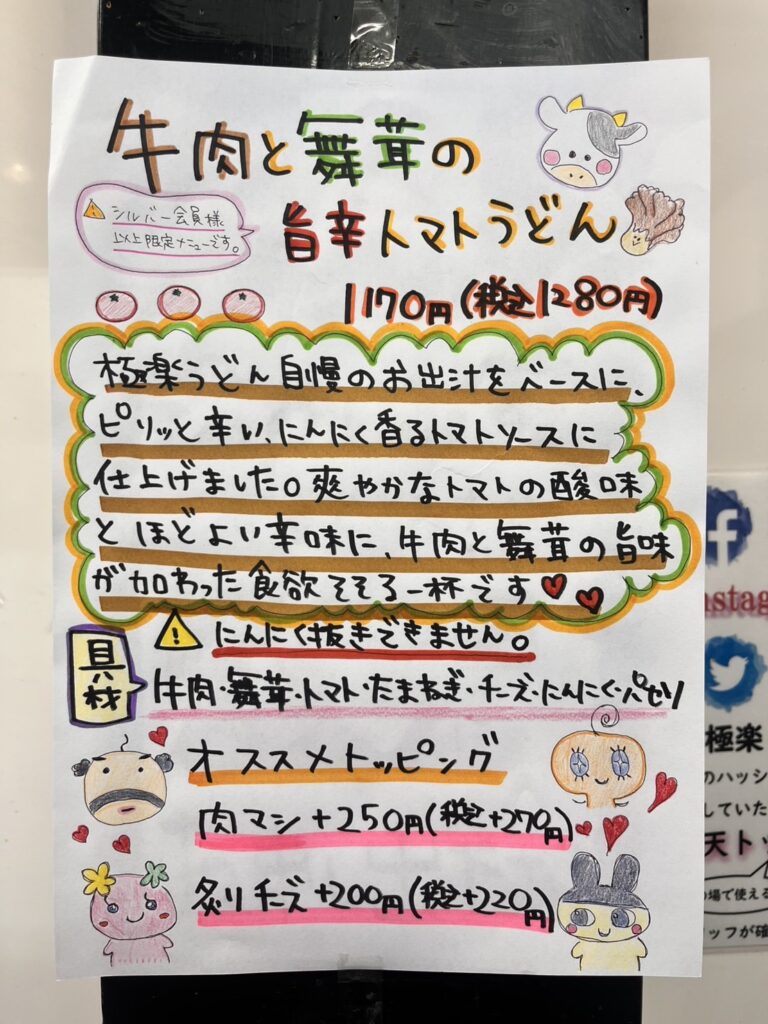 牛肉と舞茸の
旨辛トマトうどん
シルバー会員様
以上限定メニューです。
1170円(税込1280円)
極楽うどん自慢のお出汁をベースに、
ピリッと辛い、にんにく香るトマトソースに
仕上げました。爽やかなトマトの酸味
とほどよい辛味に、牛肉と舞茸の旨味
が加わった食欲そそる一杯です
にんにく抜きできません。
具材
牛肉・舞茸・トマト・たまねぎ・チーズ・にんにく・パセリ
オススメトッピング
肉マシ+250円(税込+270円)
炙りチーズ+200円(税込+220円)
nstag
極楽
のハッシ
していた
天トッ
の場で使える
タッフが確